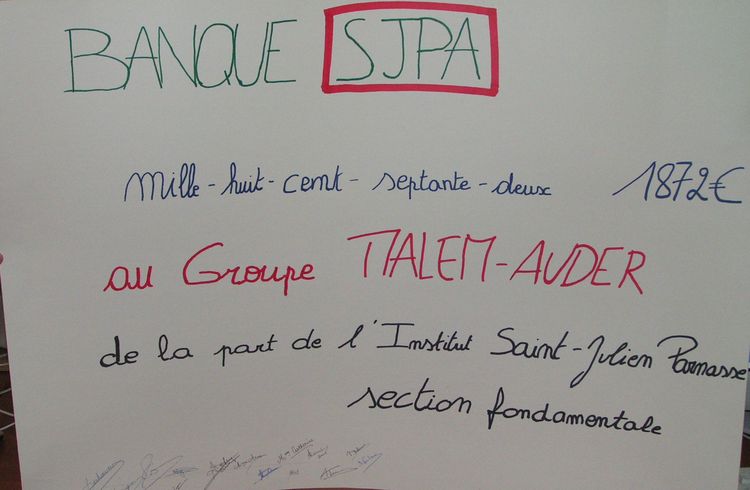 BANQUE SJPA
mille-huit-cent-septante-deux 1872€
au Groupe MALEM-AUDER
de la part de l'Institut Saint-Julien Parnasse
section fondamentale